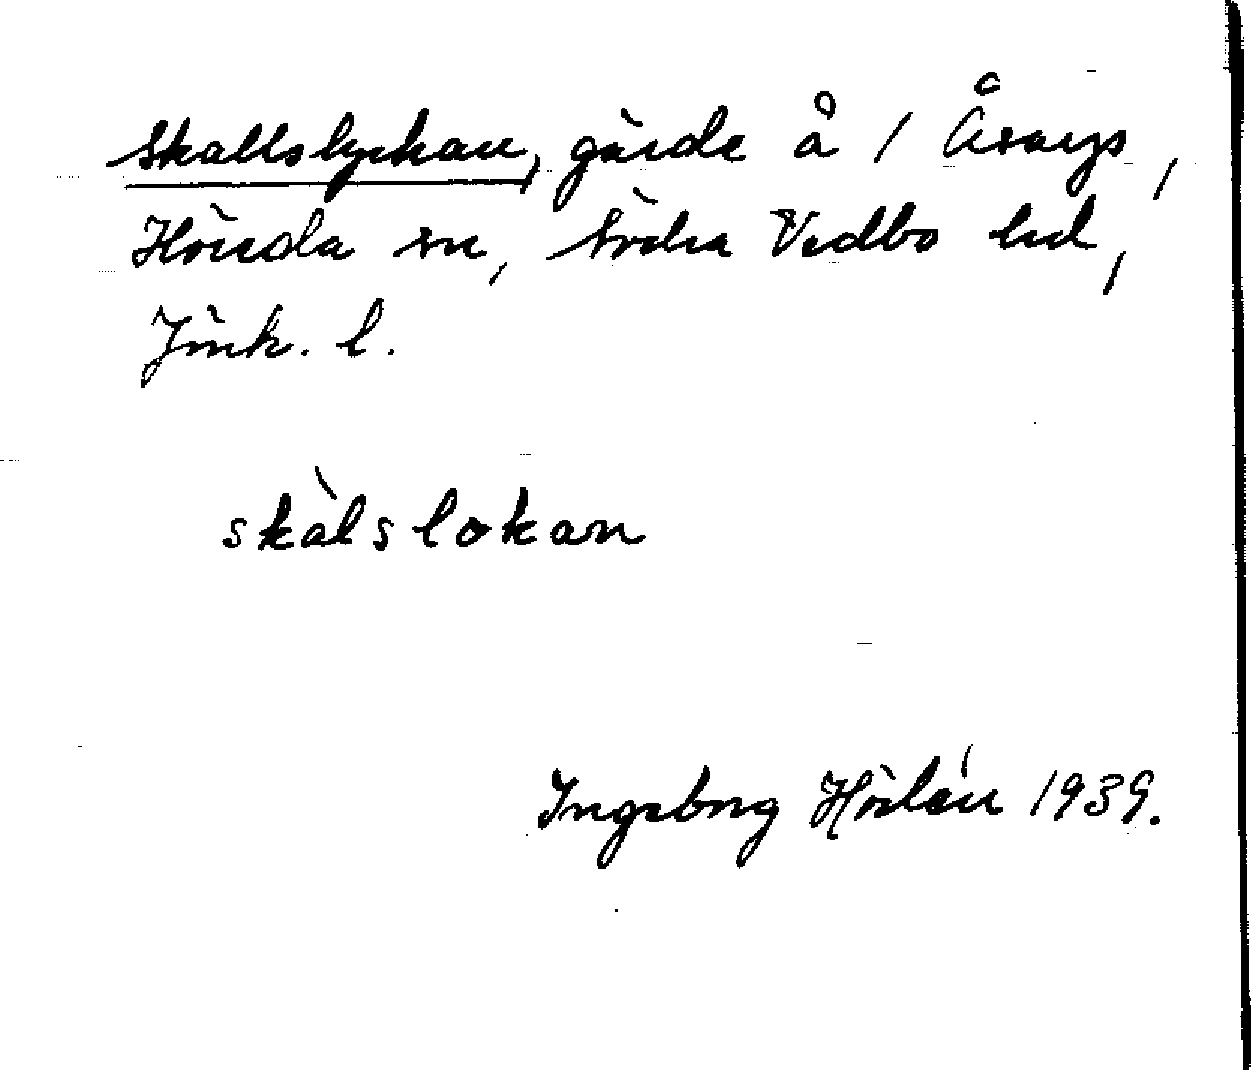 Skallslyckan, gärde å 1 Åsarys,
Höreda sn, Södra Vedbo hd,
Jönk. l.
skàlslokan
Ingeborg Hörlén 1939.